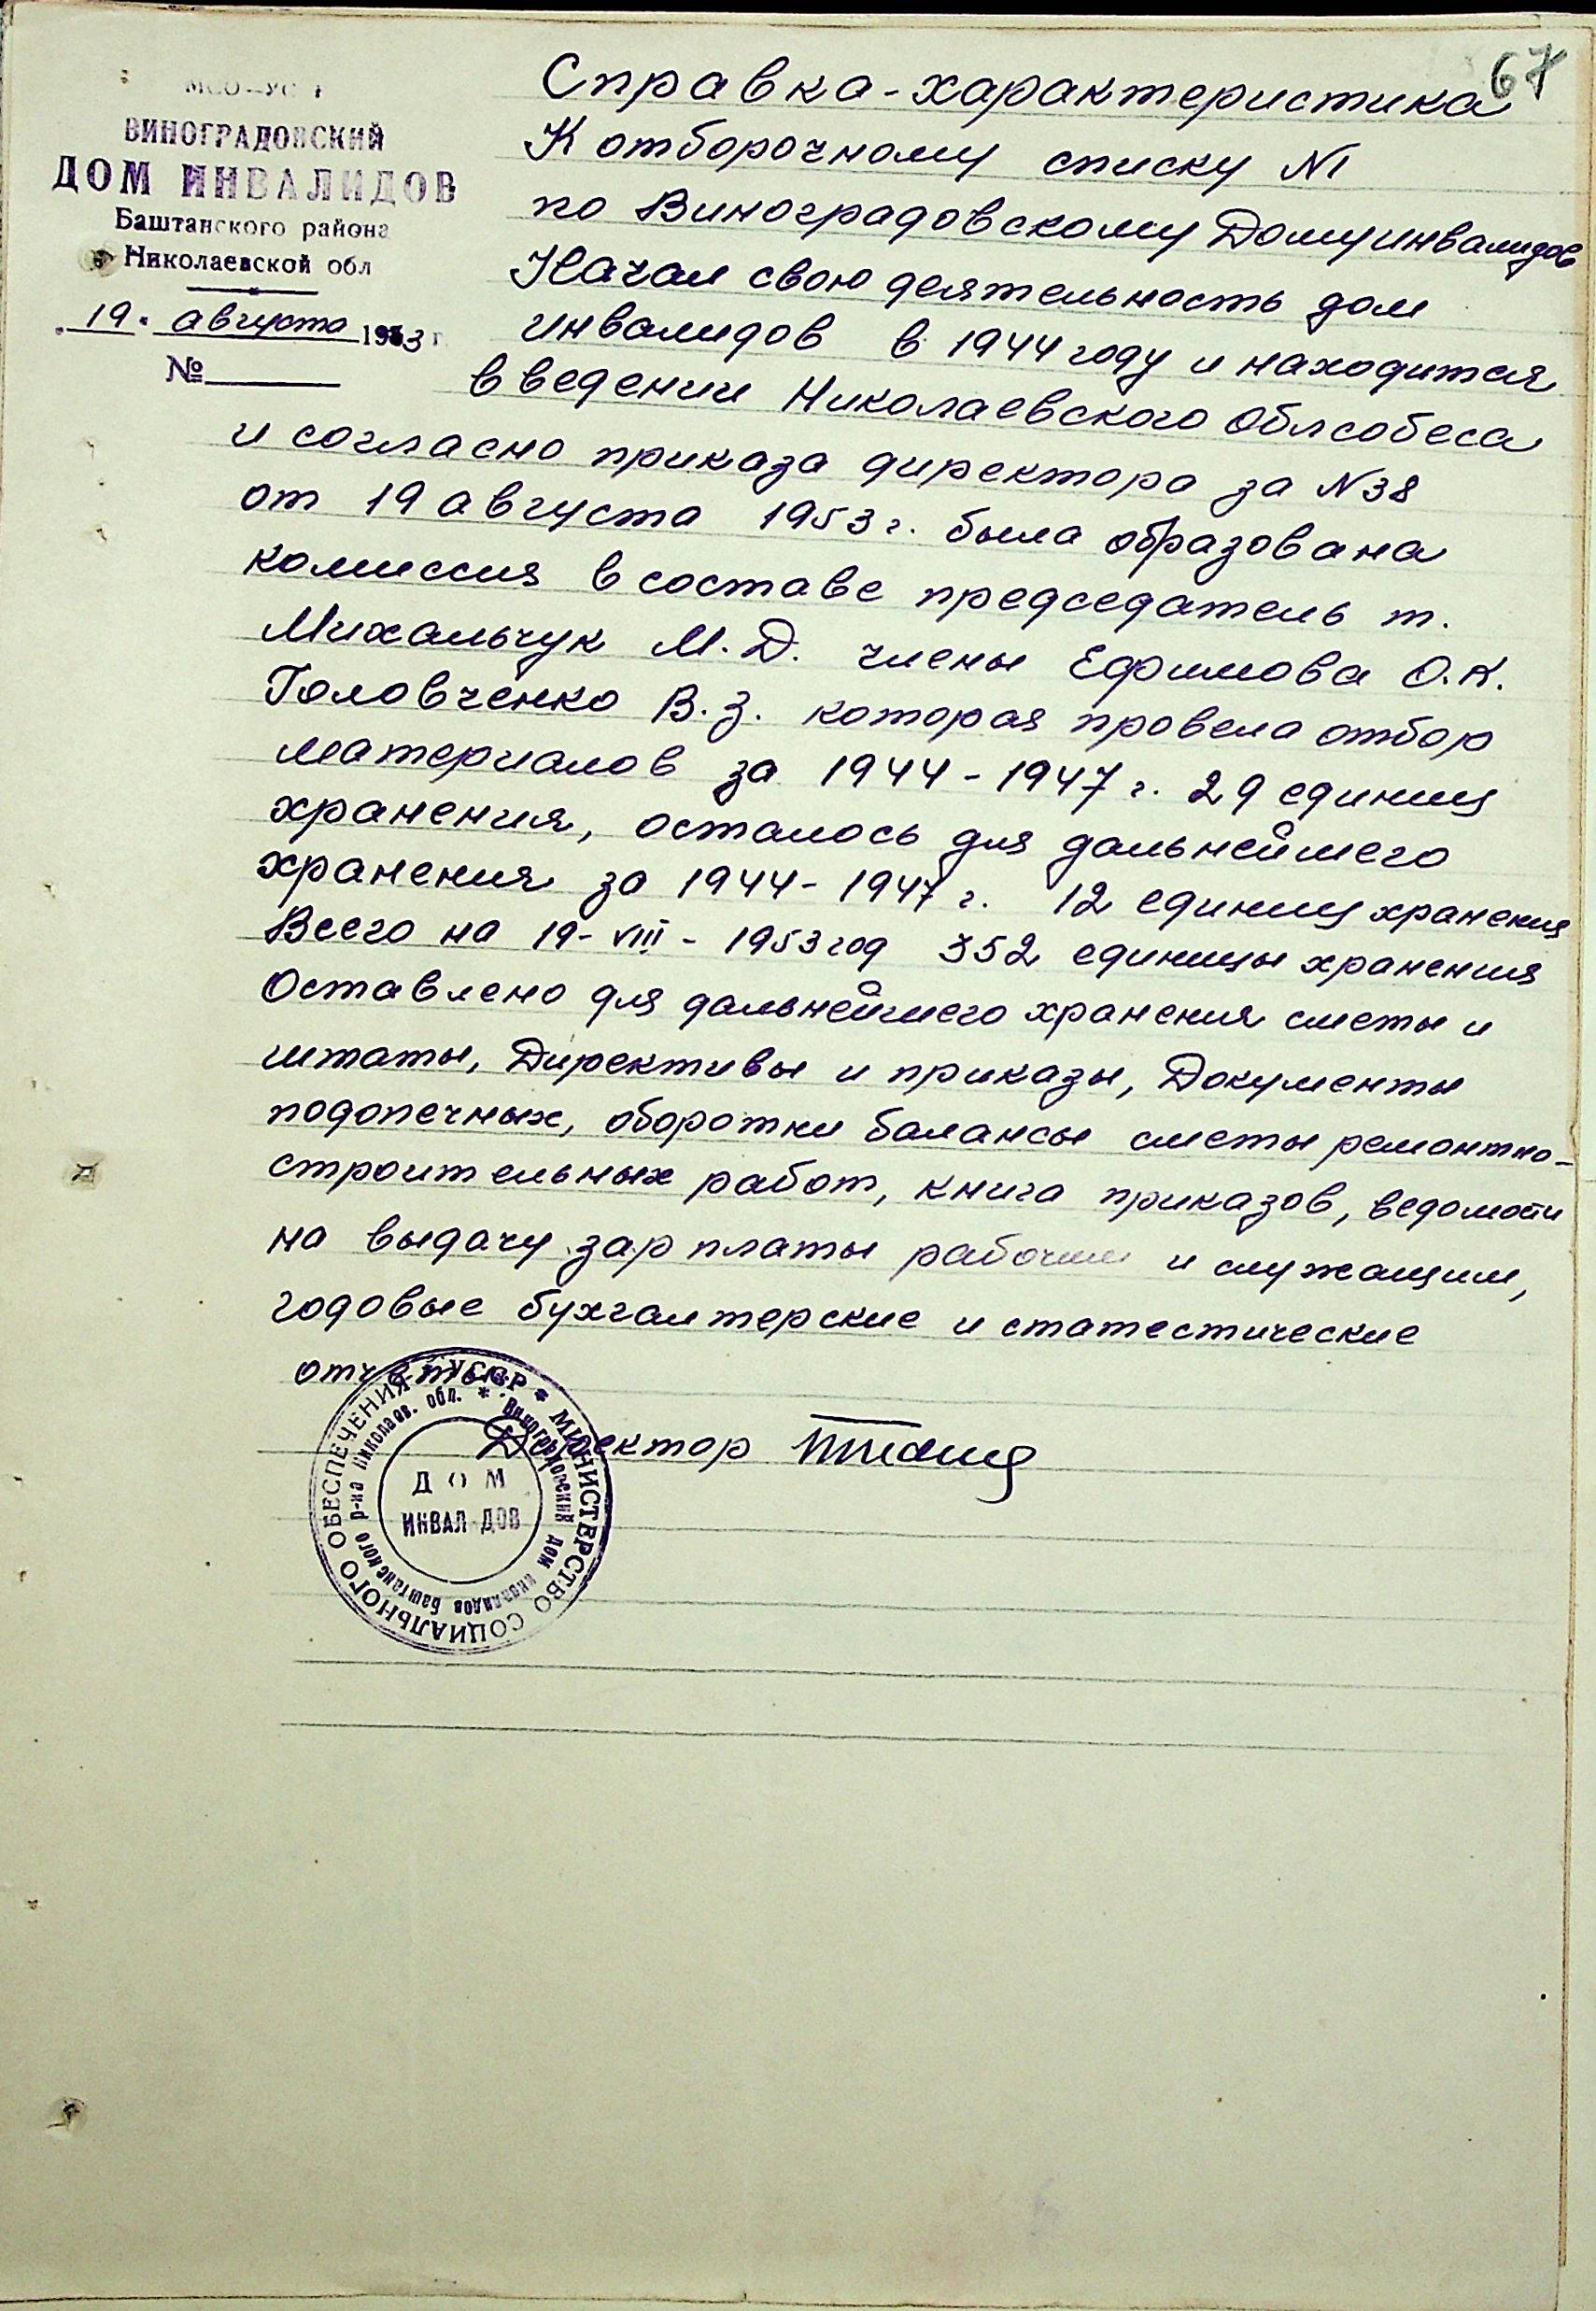 67
ВИНОГРАДОВСКИЙ
ДОМ ИНВАЛИДОВ
Баштанского района
Николаевской обл
19 августа 1953 г
№
Справка-характеристика
К отборочному списку N1
по Виноградовскому Дому инвалидов
Начал свою деятельность дом
инвалидов в 1944 году и находится
в ведении Николаевского Облсобеса
и согласно приказа директора за N38
от 19 августа 1953 г. была образована
комиссия в составе председатель т.
Михальчук М.Д. члены Ефимова О.К.
Головченко В.З. которая провела отбор
материалов за 1944-1947 г. 29 единиц
хранения, осталось для дальнейшего
хранения за 1944-1947 г. 12 единиц хранения
Всего на 19-VIII-1953 год 352 единицы хранения
Оставлено для дальнейшего хранения сметы и
штаты, Директивы и приказы, Документы
подопечных, оборотки балансы сметы ремонтно-
строительных работ, книга приказов, ведомости
на выдачу зарплаты рабочим и служащим,
годовые бухгалтерские и статестические
отчеты.
Директор
УССР * МИНИСТЕРСТВО СОЦИАЛЬНОГО ОБЕСПЕЧЕНИЯ
Виноградовский дом инвалидов Баштанского р-на Николаев. обл. *
ДОМ
ИНВАЛ ДОВ